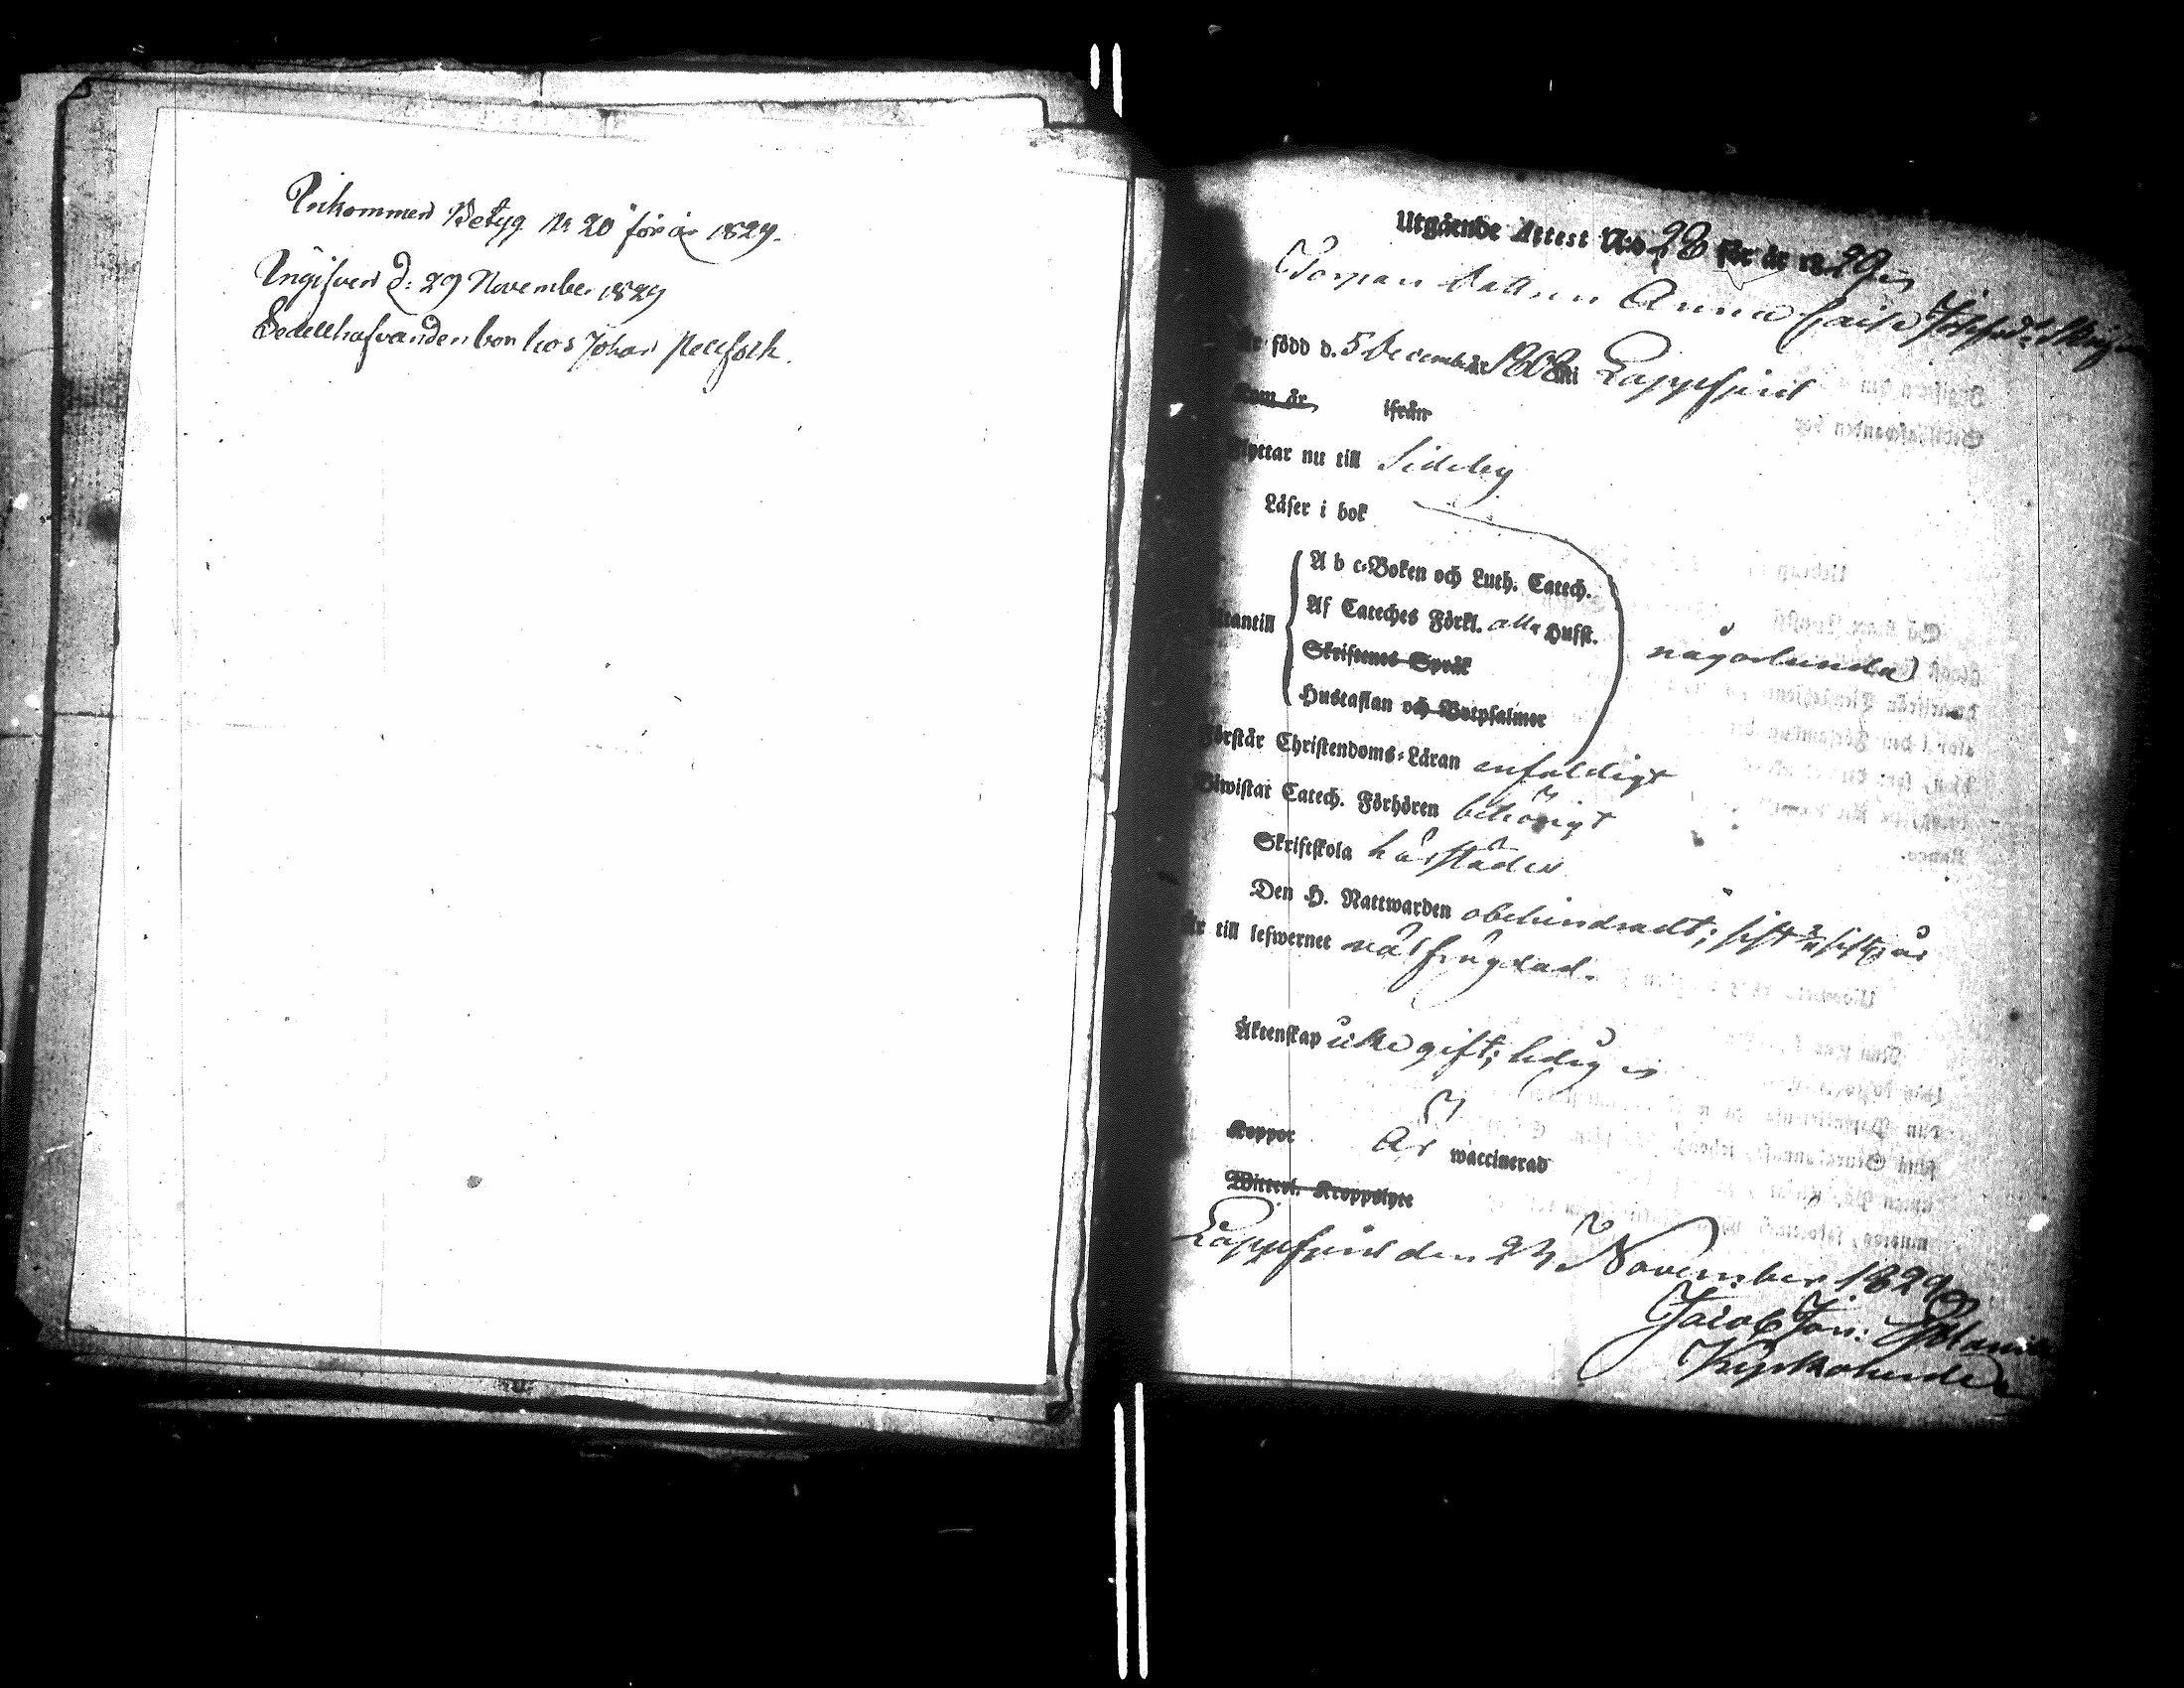 Inkommen Betyg No 20 för år 1829.
Ingifven d: 29 November 1829
Sedelhafvanden bor hos Johan
Utgående Attest N:o 28 för år 1829
Torpare dottren Anna Caisa Josephsd:r
är född d. 5 December år 1808 i Lappfjerd
Kom år ifrån
Flyttar nu till Sideby
Läser i bok
A b c-Boken och Luth. Catech.
Utantill Af Cateches Förkl. alla Hufst. någorlunda
Skriftenes Språk
Hustaflan och Botpsalmer
Förstår Christendoms-Läran enfaldigt
Biwistat Catech. Förhören behörigt
Skriftskola härstädes
Den H. Nattwarden obehindradt; sist
är till lefwernet välfrägdad.
Äktenskap icke gift; ledig
Koppor Är waccinerad
Witterl. Kroppslyte
Lappfjerd den November 1829
Jacob Jon:
Kyrkoherde